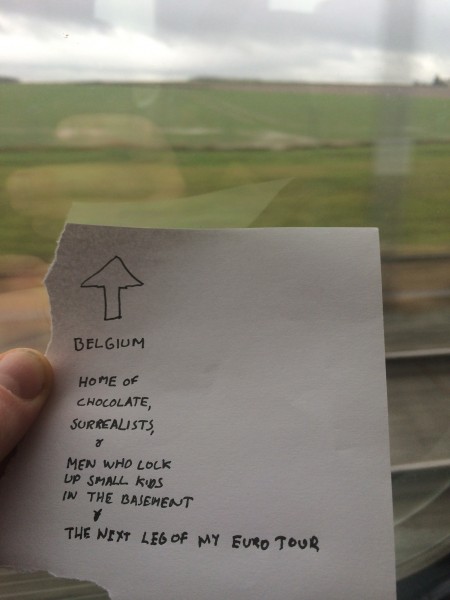 BELGIUM
HOME OF
CHOCOLATE,
SURREALISTS,
&
MEN WHO LOCK
UP SMALL KIDS
IN THE BASEMENT
&
THE NEXT LEG OF MY EURO TOUR